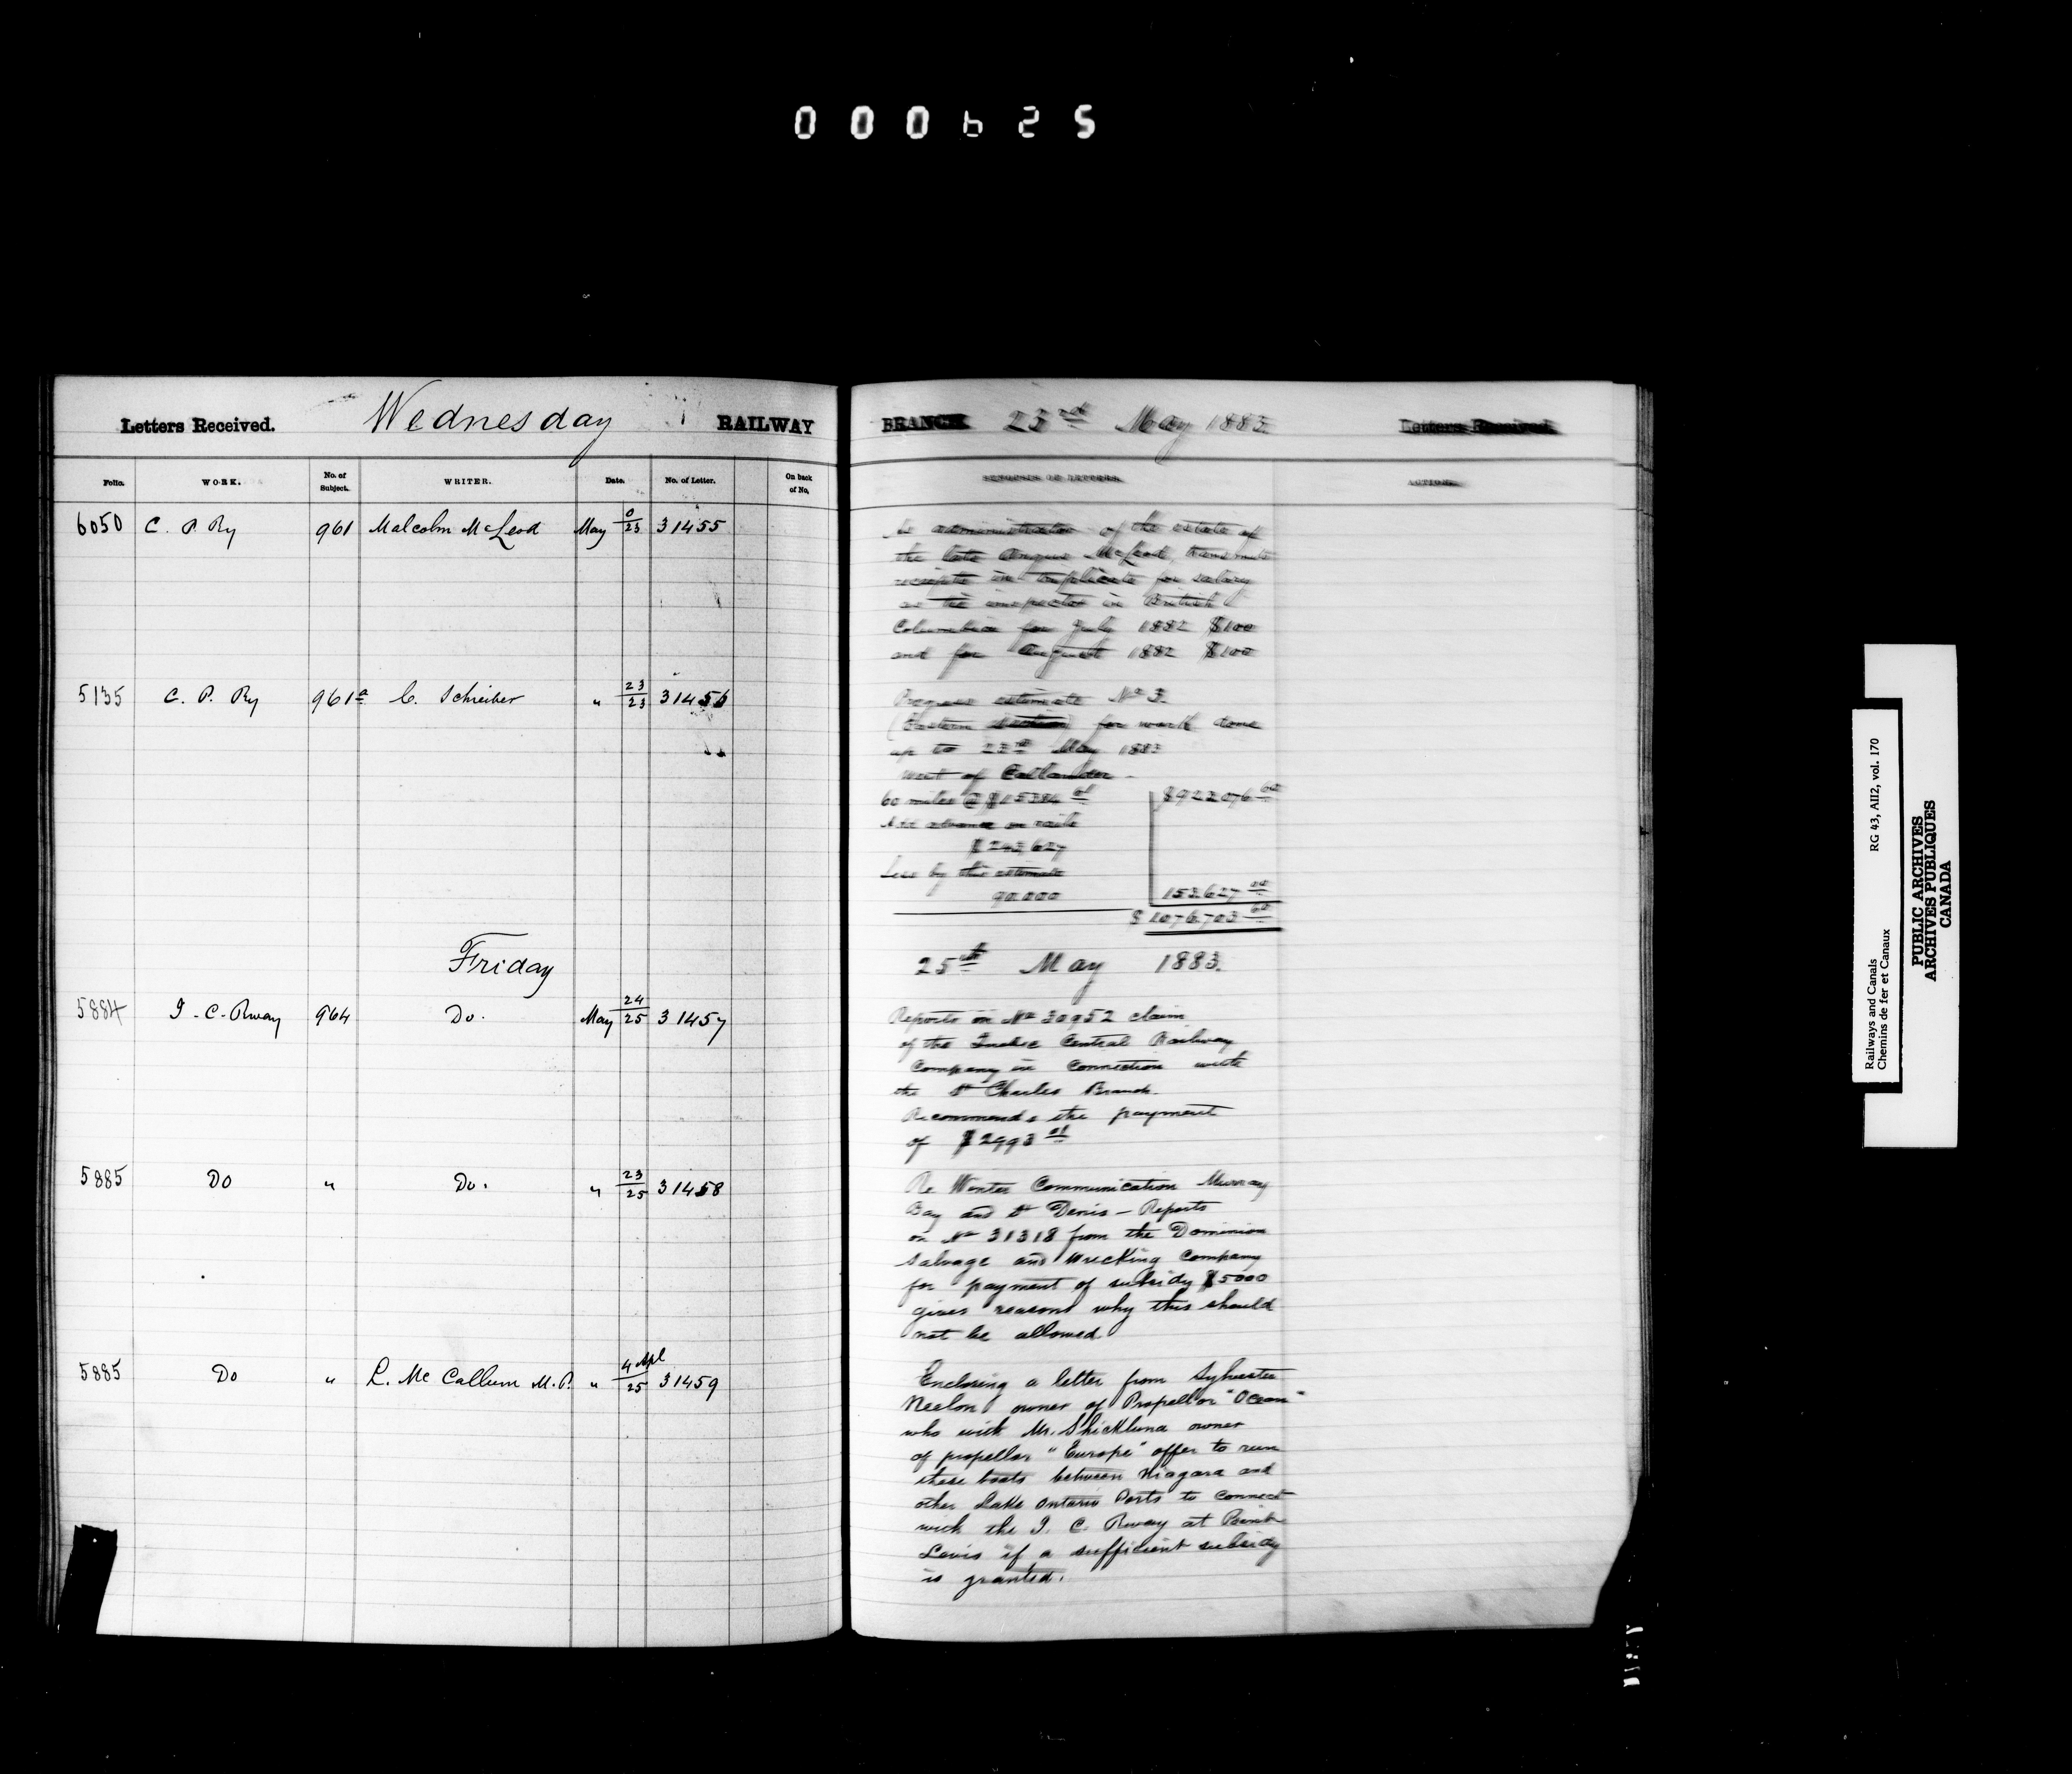 000625
Letters Received. Wednesday RAILWAY
Folio. WORK. No. of Subject. WRITER. Date. No. of Letter. On back of No.
6050 C. P. Ry 961 Malcolm McLeod May 0/23 31455
5135 C. P. Ry 961a C. Schreiber " 23/23 31456
Friday
5884 I. C. Rway 964 Do. May 24/25 31457
5885 Do " Do. " 23/25 31458
5885 Do " L. McCallum M.P. " 4 Apl/25 31459
BRANCH 23rd May 1883. Letters Received.
SYNOPSIS OF LETTERS. ACTION.
As administrator of the estate of
the late Angus McLeod, transmits
receipts in triplicate for salary
as tie inspector in British
Columbia for July 1882 $100
and for August 1882 $100
Progress estimate No 3.
(Eastern Section) for work done
up to 23rd May 1883
West of Callander.
60 miles @ $15384 $922076 60
Add advance on rails
$243,627
Less by this estimate
90.000 153.627 00
$1076.703 60
25th May 1883.
Reports on No 30952 claim
of the Quebec Central Railway
Company in connection with
the St Charles Branch.
Recommends the payment
of $2993 01
Re Winter Communication Murray
Bay and St Denis – Reports
on No 31318 from the Dominion
Salvage and Wrecking Company
for payment of subsidy $5000
gives reasons why this should
not be allowed.
Enclosing a letter from Sylvester
Neelon owner of Propellor "Ocean"
who with Mr. Shickluna owner
of propellor "Europe" offer to run
these boats between Niagara and
other Lake Ontario Ports to connect
with the I. C. Rway at Point
Levis if a sufficient subsidy
is granted.
Railways and Canals RG 43, AII2, vol. 170
Chemins de fer et Canaux
PUBLIC ARCHIVES
ARCHIVES PUBLIQUES
CANADA